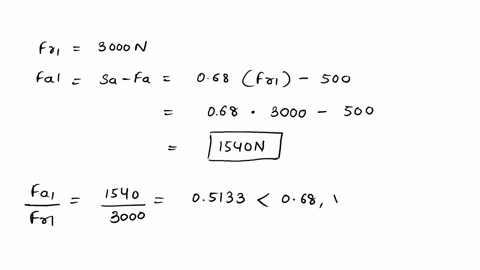 Fr1 = 3000 N
Fa1 = Sa - Fa = 0.68 (Fr1) - 500
= 0.68 · 3000 - 500
= 1540N
Fa1/Fr1 = 1540/3000 = 0.5133 < 0.68,